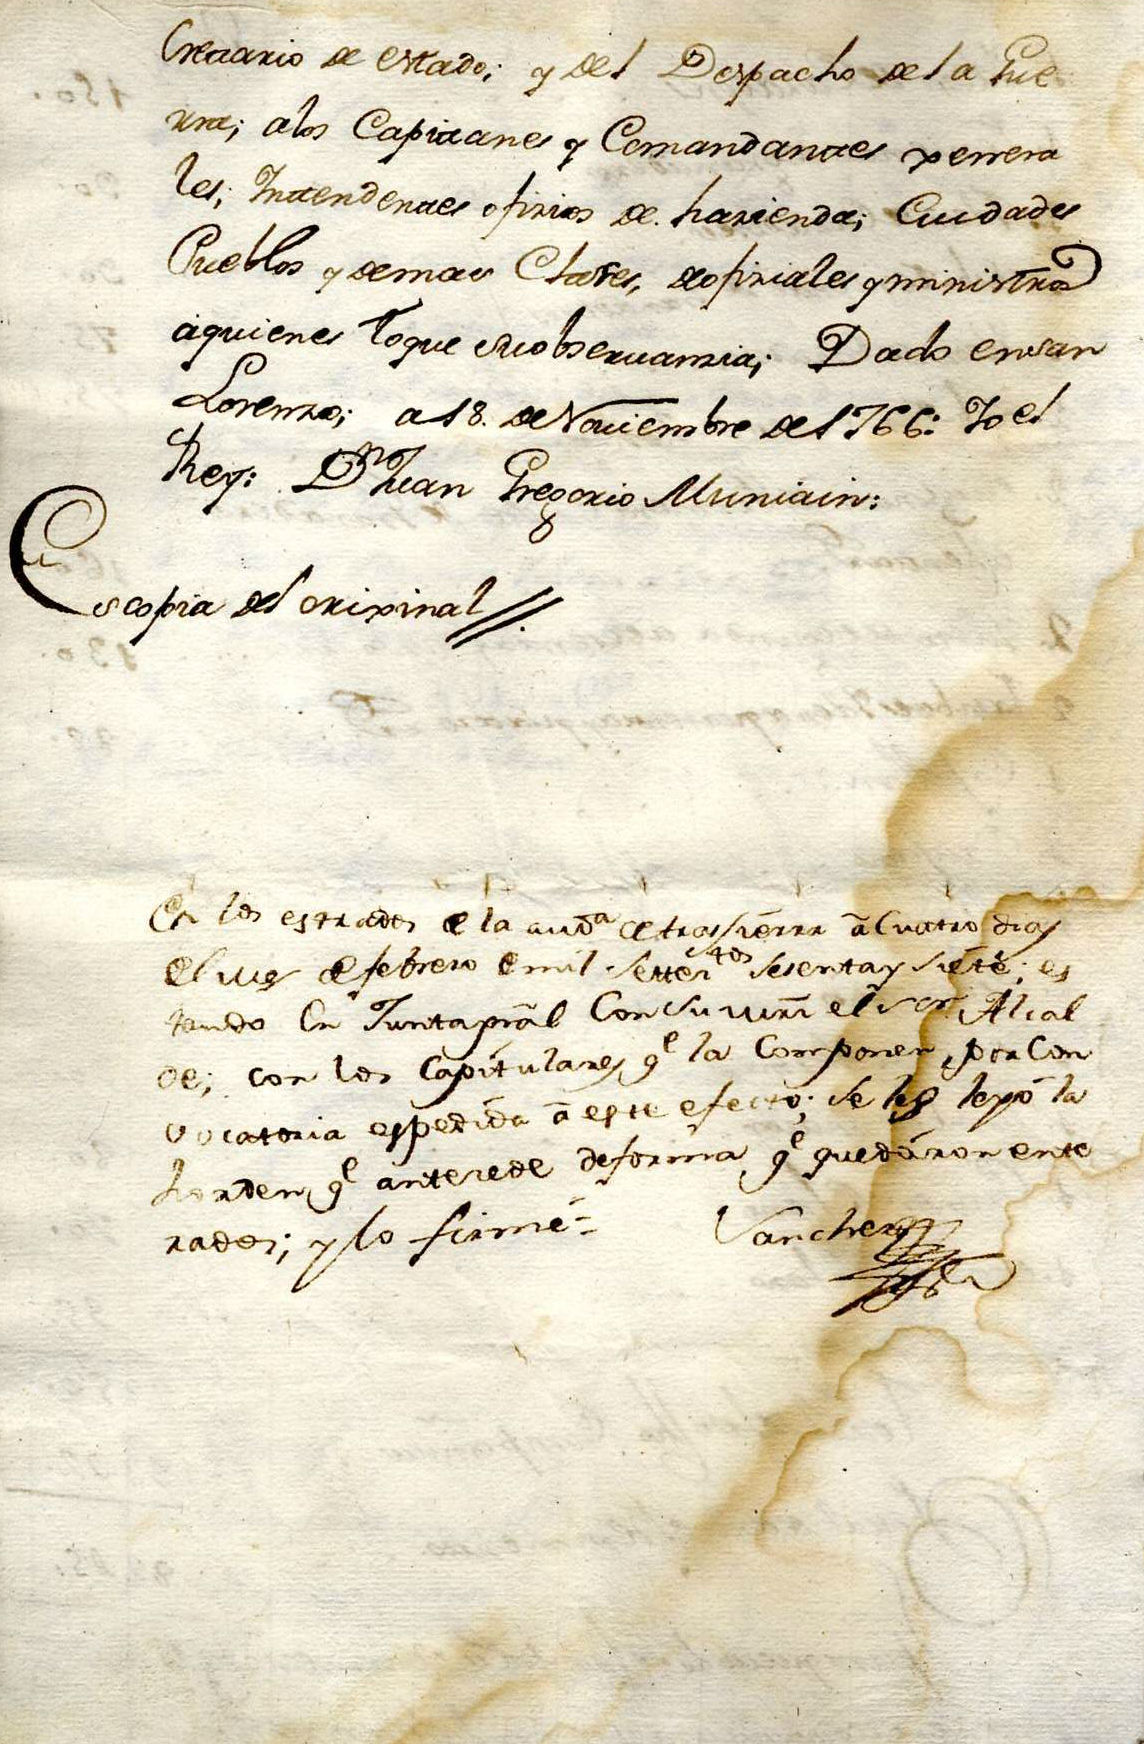 Cretario de estado; y del Despacho de la Gue
rra; alos Capitanes y Comandantes xenera
les; Intendentes ofizios de hazienda; Ciudades
Pueblos y demas Clases, de ofiziales y ministros
aquienes toque su observanzia; Dado en san
Lorenzo; a 18. de Noviembre de 1766: Yo el
Rey: Dn Juan Gregorio Muniain:
Es copia del orixinal //.
En los estrados de la audª de trassierra â Cuatro dias
del mes de febrero de mil settetos sesenta y siete; es
tando en Junta el sor Alcal
de; con los Capitulares qe la Componen, por Con
vocatoria espedida â este efecto; se les leyó la
horden qe antezede de forma qe quedáron ente
rados; y lo firmé =
Sanchez